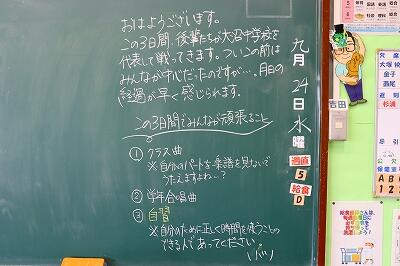 おはようございます。
この3日間、後輩たちが大沼中学校を
代表して戦ってきます。ついこの前は
みんなが中心だったのですが…。月日の
経過が早く感じられます。
この3日間でみんなが頑張ること
① クラス曲
※自分のパートを楽譜を見ないで
うたえますよね…?
② 学年合唱曲
③ 自習
※自分のために正しく時間を使うことの
できる人であってください
九月24日水曜
週直
5
給食
D
吉田
欠席
大塚
金子
遅刻
杉浦
忌引
A B C
1 2 3